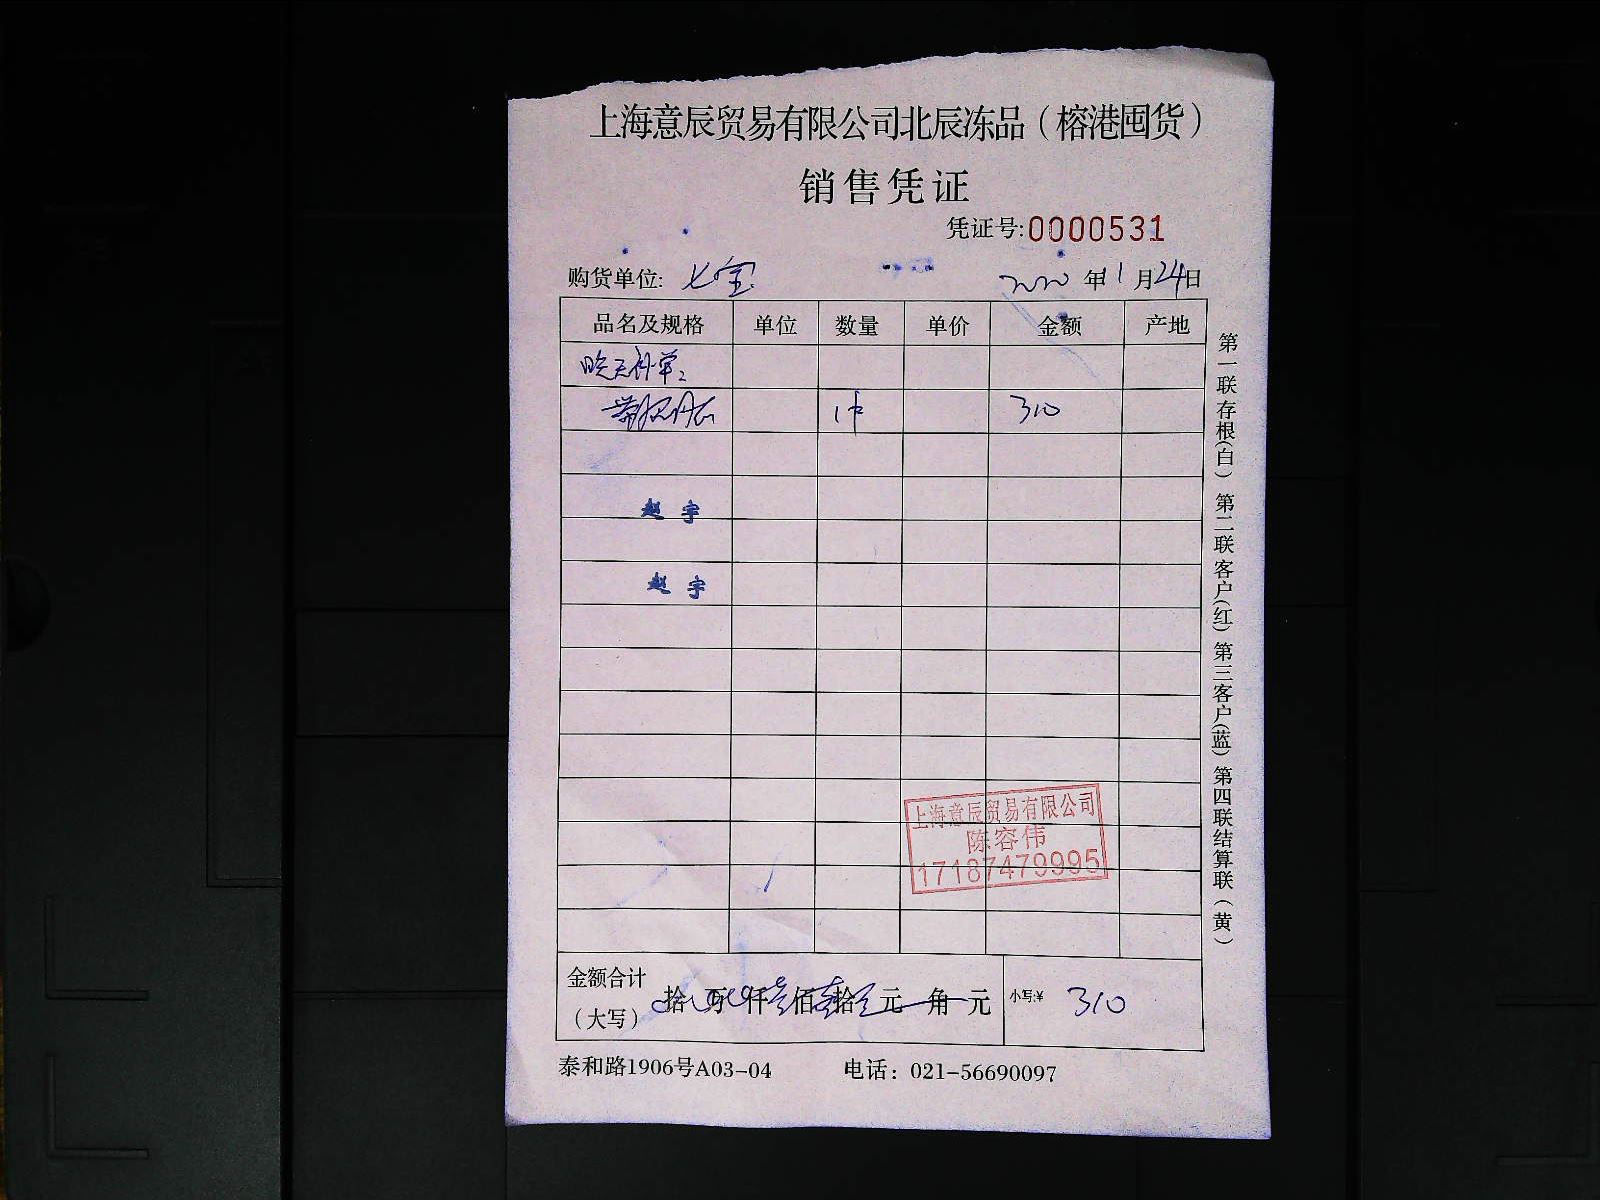 上海意辰贸易有限公司北辰冻品（榕港囤货）
销售凭证
凭证号:0000531
购货单位: 七宝 2020 年 1 月 24 日
品名及规格 单位 数量 单价 金额 产地
昨天补单:
1件 310
赵宇
赵宇
上海意辰贸易有限公司
陈容伟
17187479995
金额合计（大写） 拾 万 仟 叁 佰 壹 拾 元 角 元 小写:¥ 310
泰和路1906号A03-04 电话：021-56690097
第一联存根(白) 第二联客户(红) 第三客户(蓝) 第四联结算联(黄)